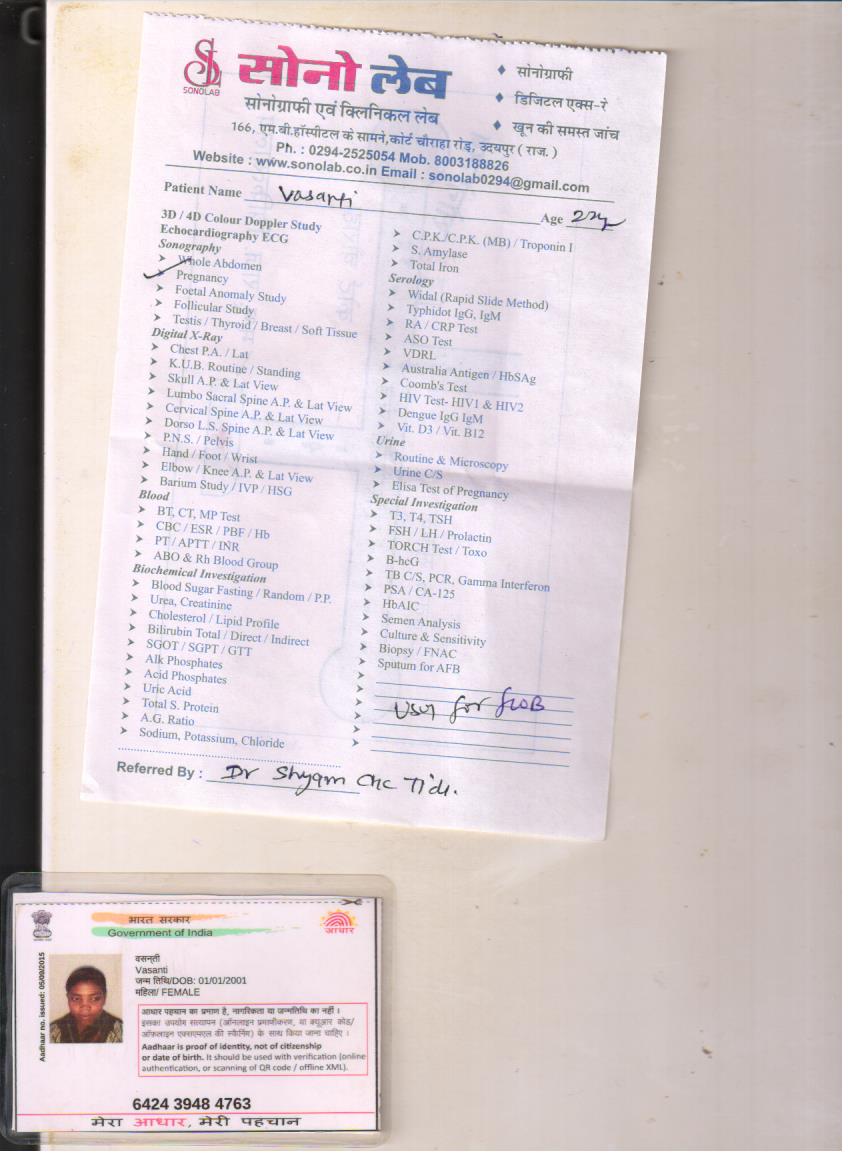 SONOLAB
सोनो लेब
सोनोग्राफी एवं क्लिनिकल लेब
♦ सोनोग्राफी
♦ डिजिटल एक्स-रे
♦ खून की समस्त जांच
166, एम.बी.हॉस्पीटल के सामने,कोर्ट चौराहा रोड़, उदयपुर ( राज. )
Ph. : 0294-2525054 Mob. 8003188826
Website : www.sonolab.co.in Email : sonolab0294@gmail.com
Patient Name Vasanti Age
3D / 4D Colour Doppler Study
Echocardiography ECG
Sonography
Whole Abdomen
Pregnancy
Foetal Anomaly Study
Follicular Study
Testis / Thyroid / Breast / Soft Tissue
Digital X-Ray
Chest P.A. / Lat
K.U.B. Routine / Standing
Skull A.P. & Lat View
Lumbo Sacral Spine A.P. & Lat View
Cervical Spine A.P. & Lat View
Dorso L.S. Spine A.P. & Lat View
P.N.S. / Pelvis
Hand / Foot / Wrist
Elbow / Knee A.P. & Lat View
Barium Study / IVP / HSG
Blood
BT, CT, MP Test
CBC / ESR / PBF / Hb
PT / APTT / INR
ABO & Rh Blood Group
Biochemical Investigation
Blood Sugar Fasting / Random / P.P.
Urea, Creatinine
Cholesterol / Lipid Profile
Bilirubin Total / Direct / Indirect
SGOT / SGPT / GTT
Alk Phosphates
Acid Phosphates
Uric Acid
Total S. Protein
A.G. Ratio
Sodium, Potassium, Chloride
C.P.K./C.P.K. (MB) / Troponin I
S. Amylase
Total Iron
Serology
Widal (Rapid Slide Method)
Typhidot IgG, IgM
RA / CRP Test
ASO Test
VDRL
Australia Antigen / HbSAg
Coomb's Test
HIV Test- HIV1 & HIV2
Dengue IgG IgM
Vit. D3 / Vit. B12
Urine
Routine & Microscopy
Urine C/S
Elisa Test of Pregnancy
Special Investigation
T3, T4, TSH
FSH / LH / Prolactin
TORCH Test / Toxo
B-hcG
TB C/S, PCR, Gamma Interferon
PSA / CA-125
HbAIC
Semen Analysis
Culture & Sensitivity
Biopsy / FNAC
Sputum for AFB
USG for FWB
Referred By : Dr Shyam CHC Tidi.
भारत सरकार
Government of India
आधार
Aadhaar no. issued: 05/09/2015
वसन्ती
Vasanti
जन्म तिथि/DOB: 01/01/2001
महिला/ FEMALE
आधार पहचान का प्रमाण है, नागरिकता या जन्मतिथि का नहीं ।
इसका उपयोग सत्यापन (ऑनलाइन प्रमाणीकरण, या क्यूआर कोड/
ऑफ़लाइन एक्सएमएल की स्कैनिंग) के साथ किया जाना चाहिए ।
Aadhaar is proof of identity, not of citizenship
or date of birth. It should be used with verification (online
authentication, or scanning of QR code / offline XML).
6424 3948 4763
मेरा आधार, मेरी पहचान